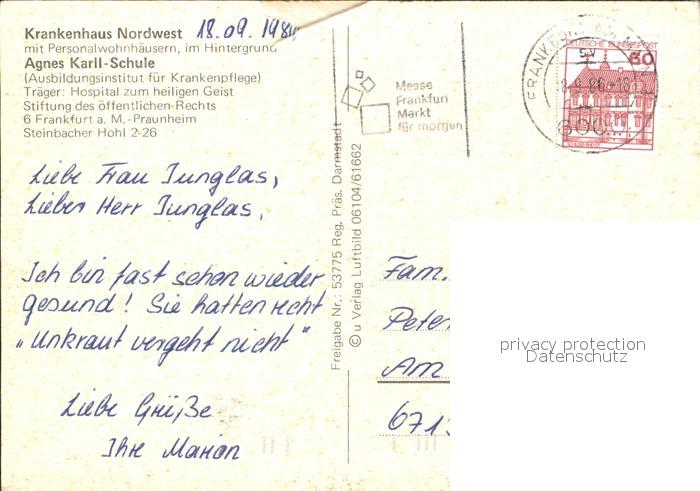 Krankenhaus Nordwest
18.09.198
mit Personalwohnhäusern, im Hintergrund
Agnes Karll-Schule
(Ausbildungsinstitut für Krankenpflege)
Träger: Hospital zum heiligen Geist
Stiftung des öffentlichen-Rechts
6 Frankfurt a. M.-Praunheim
Steinbacher Hohl 2-26
Liebe Frau Junglas,
Lieber Herr Junglas,
Ich bin fast schon wieder
gesund! Sie hatten recht
„Unkraut vergeht nicht"
Liebe Grüße
Ihre Marion
Freigabe Nr.: 53775 Reg. Präs. Darmstadt
© u Verlag Luftbild 06104/61662
Messe
Frankfurt
Markt
für morgen
FRANKFURT AM
DEUTSCHE BUNDESPOST
60
Fam.
Peter
Am
6713
privacy protection
Datenschutz